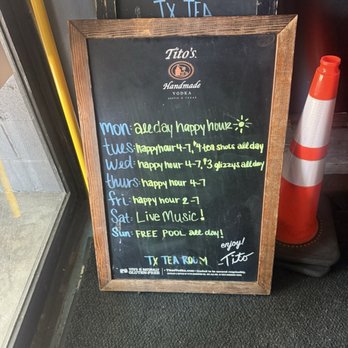 TX TEA
Tito's
Handmade
VODKA
AUSTIN * TEXAS
mon: all day happy hour
tues: happy hour 4-7, $4 tea shots all day
Wed: happy hour 4-7, $3 glizzys all day
thurs: happy hour 4-7
fri: happy hour 2-7
Sat: Live Music!
Sun: FREE POOL all day!
enjoy!
-Tito
TX TEA ROOM